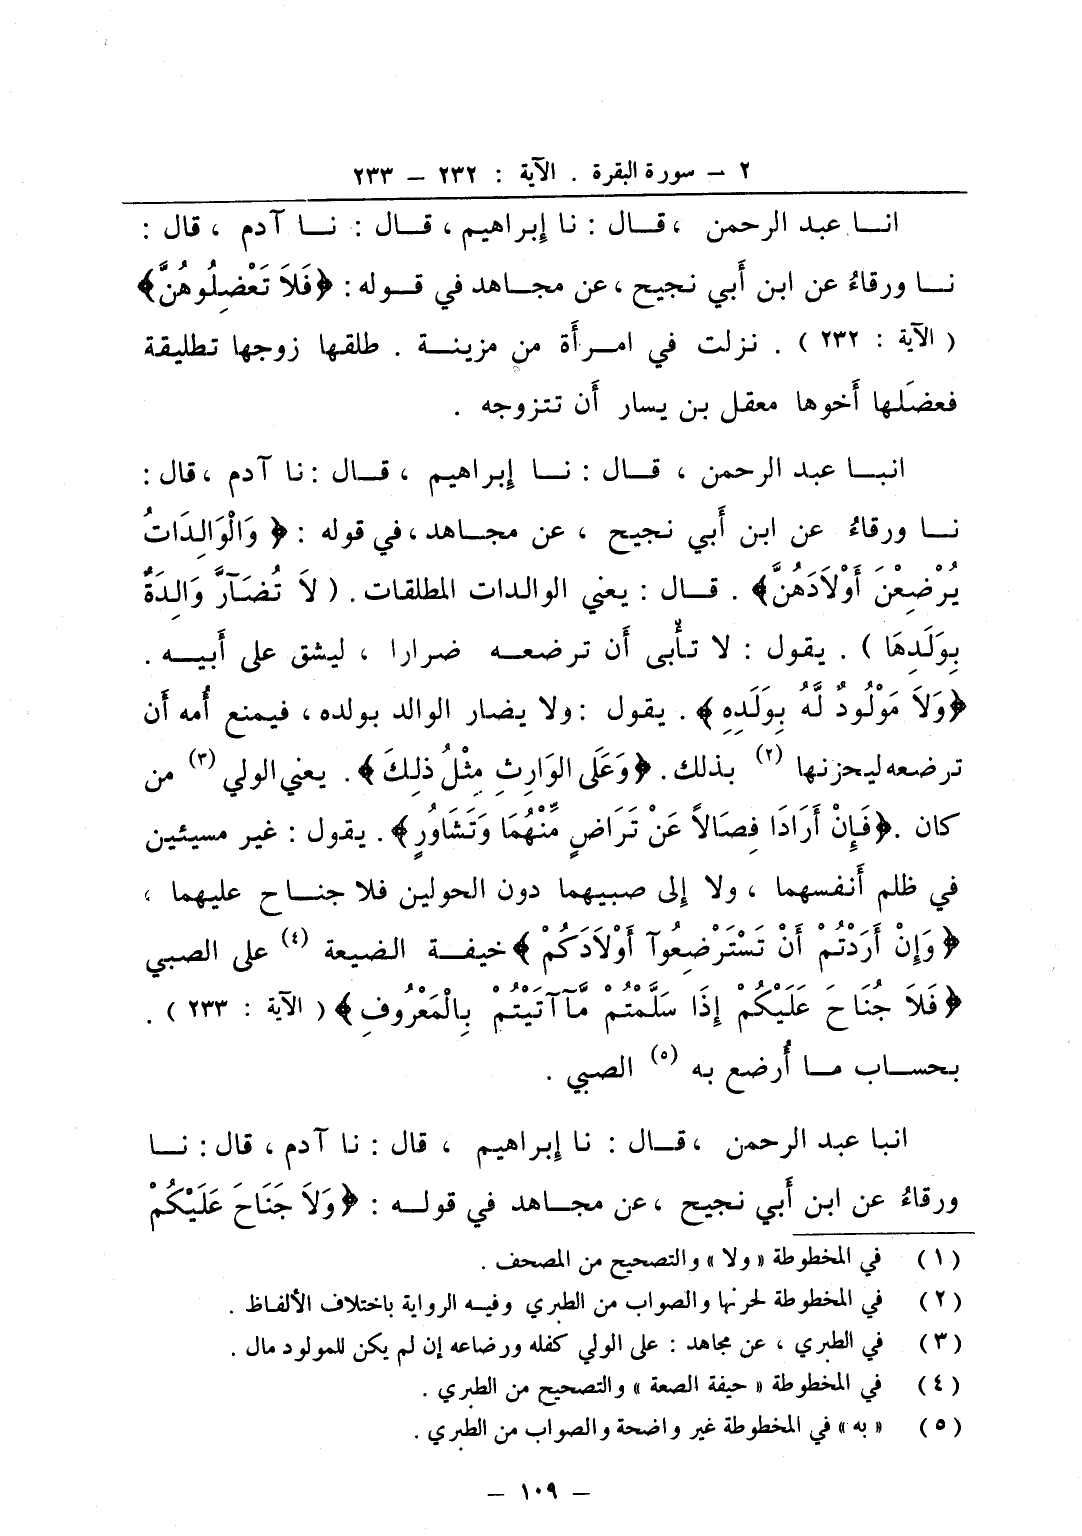 ٢ – سورة البقرة . الآية : ٢٣٢ – ٢٣٣
انا عبد الرحمن ، قال : نا إبراهيم ، قال : نا آدم ، قال :
نا ورقاءُ عن ابن أَبي نجيح ، عن مجاهد في قوله : ﴿فَلاَ تَعْضِلُوهُنَّ﴾
( الآية : ٢٣٢ ) . نزلت في امرأَة من مزينة . طلقها زوجها تطليقة
فعضَلها أَخوها معقل بن يسار أَن تتزوجه .
انبا عبد الرحمن ، قال : نا إبراهيم ، قال : نا آدم ، قال :
نا ورقاءُ عن ابن أَبي نجيح ، عن مجاهد ، في قوله : ﴿ وَالْوَالِدَاتُ
يُرْضِعْنَ أَوْلَادَهُنَّ﴾ . قال : يعني الوالدات المطلقات . ( لاَ تُضَآرَّ وَالِدَةٌ
بِوَلَدِهَا ) . يقول : لا تأْبى أَن ترضعه ضرارا ، ليشق على أَبيه .
﴿وَلاَ مَوْلُودٌ لَّهُ بِوَلَدِهِ﴾ . يقول : ولا يضار الوالد بولده ، فيمنع أُمه أَن
ترضعه ليحزنها (٢) بذلك . ﴿وَعَلَى الوَارِثِ مِثْلُ ذلِكَ﴾ . يعني الولي (٣) من
كان . ﴿فَإِنْ أَرَادَا فِصَالاً عَنْ تَرَاضٍ مِّنْهُمَا وَتَشَاوُرٍ﴾ . يقول : غير مسيئين
في ظلم أَنفسهما ، ولا إلى صبيهما دون الحولين فلا جناح عليهما ،
﴿وَإِنْ أَرَدْتُمْ أَنْ تَسْتَرْضِعُوآ أَوْلَادَكُمْ ﴾ خيفة الضيعة (٤) على الصبي
﴿فَلاَ جُنَاحَ عَلَيْكُمْ إِذَا سَلَّمْتُمْ مَّآآتَيْتُمْ بِالْمَعْرُوفِ﴾ ( الآية : ٢٣٣ ) .
بحساب ما أُرضع به (٥) الصبي .
انبا عبد الرحمن ، قال : نا إبراهيم ، قال : نا آدم ، قال : نا
ورقاءُ عن ابن أَبي نجيح ، عن مجاهد في قوله : ﴿وَلاَ جَنَاحَ عَلَيْكُمْ
(١) في المخطوطة « ولا » والتصحيح من المصحف .
(٢) في المخطوطة لحرنها والصواب من الطبري وفيه الرواية باختلاف الألفاظ .
(٣) في الطبري ، عن مجاهد : على الولي كفله ورضاعه إن لم يكن للمولود مال .
(٤) في المخطوطة « حيفة الصعة » والتصحيح من الطبري .
(٥) « به » في المخطوطة غير واضحة والصواب من الطبري .
– ١٠٩ –